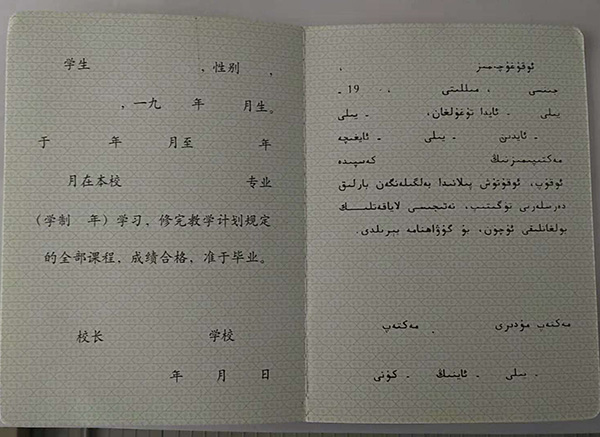 学生 ，性别 ，
，一九 年 月生。
于 年 月至 年
月在本校 专业
（学制 年）学习，修完教学计划规定
的全部课程，成绩合格，准于毕业。
校长 学校
年 月 日
ئوقۇغۇچىمىز ،
جىنسى ، مىللىتى ، 19 ـ
يىلى ـ ئايدا تۇغۇلغان، ـ يىلى
ـ ئايدىن ـ يىلى ـ ئايغىچە
مەكتىپىمىزنىڭ كەسپىدە
ئوقۇپ، ئوقۇتۇش پىلانىدا بەلگىلەنگەن بارلىق
دەرسلەرنى تۈگىتىپ، نەتىجىسى لاياقەتلىك
بولغانلىقى ئۈچۈن، بۇ گۇۋاھنامە بېرىلدى.
مەكتەپ مۇدىرى مەكتەپ
ـ يىلى ـ ئاينىڭ ـ كۈنى